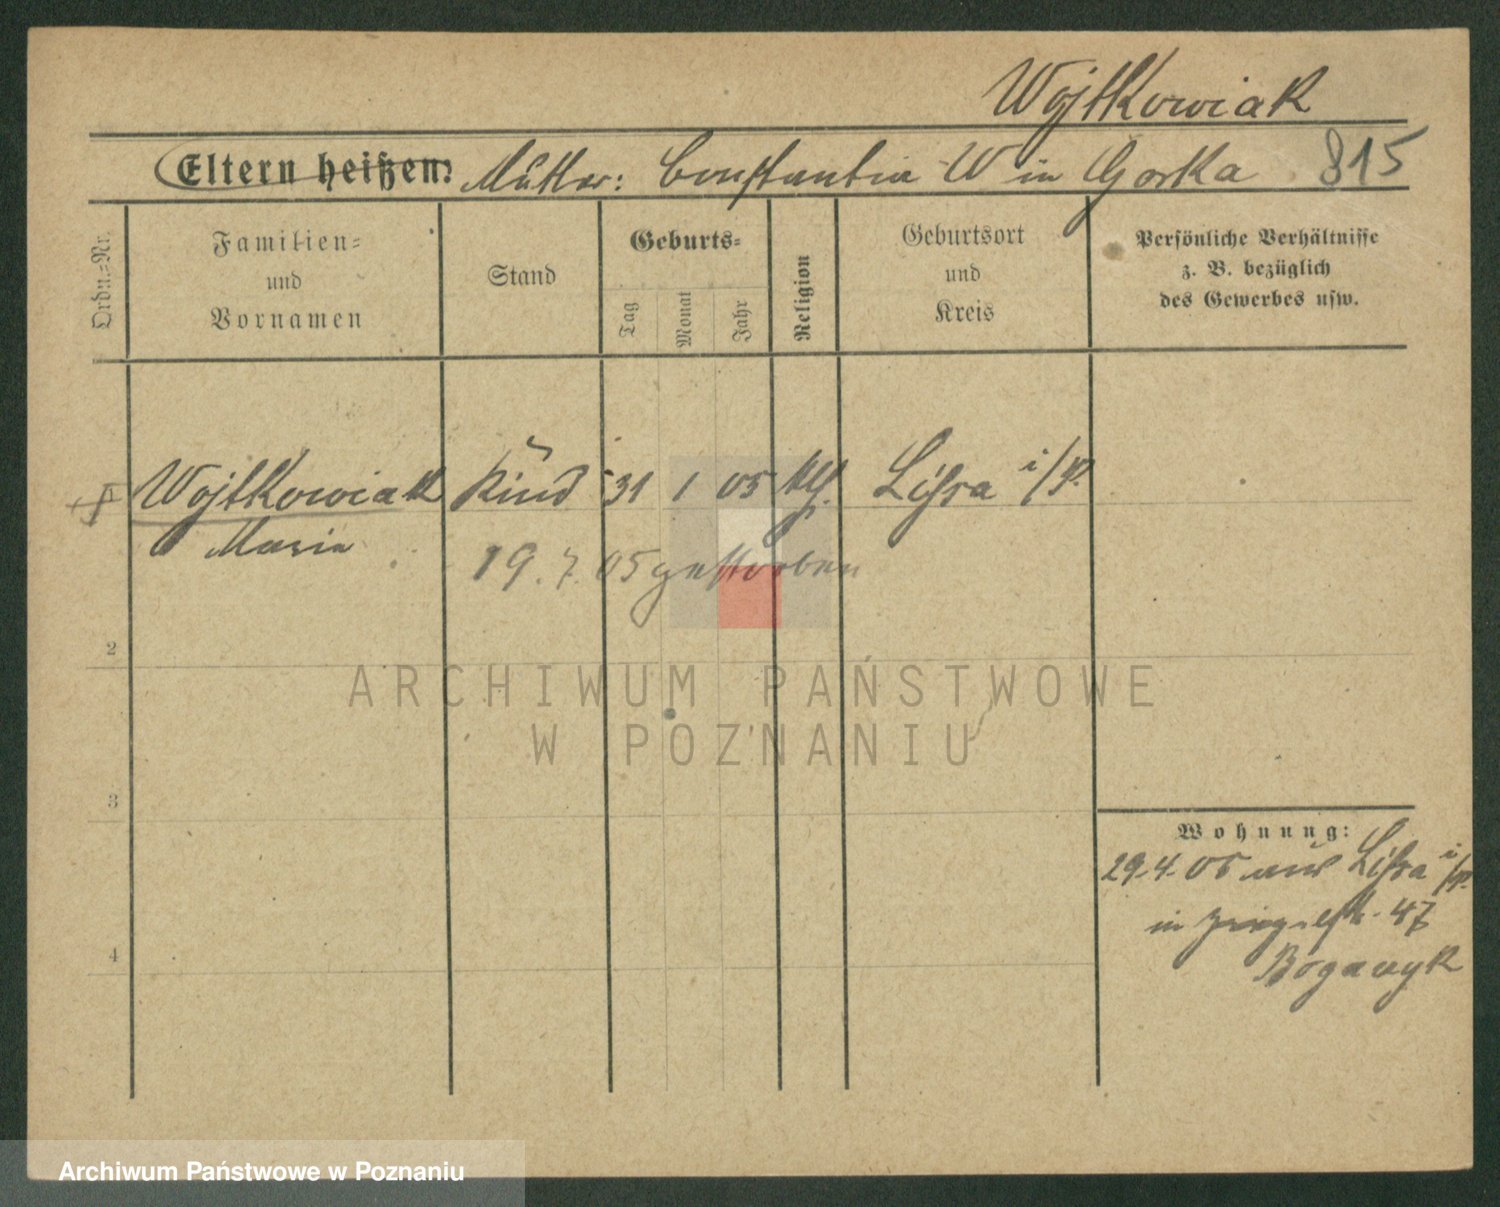 Wojtkowiak
Eltern heißen: Mutter: Constantia W in Gorka 815
Ordn.-Nr.
Familien-
und
Vornamen
Stand
Geburts-
Tag
Monat
Jahr
Religion
Geburtsort
und
Kreis
Persönliche Verhältnisse
z. B. bezüglich
des Gewerbes usw.
Wojtkowiak Kind 31 1 05 kth. Lissa i/P.
Maria
19. 7. 05 gestorben
2
3
4
Wohnung:
29.4.05 aus Lissa i/P.
in 47
ARCHIWUM PAŃSTWOWE
W POZNANIU
Archiwum Państwowe w Poznaniu